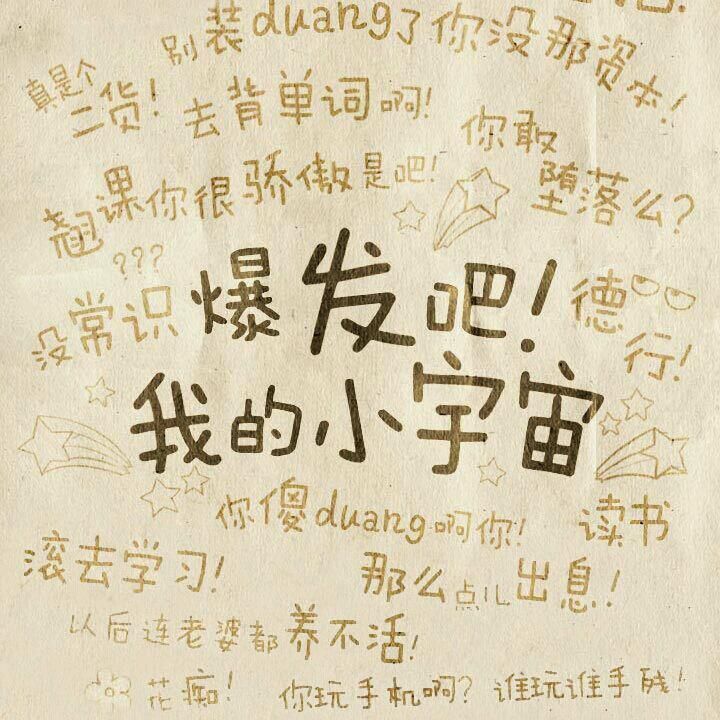 别装duang了你没那资本！
真是个
二货！
去背单词啊！
你敢
堕落么？
翘课你很骄傲是吧！
???
没常识
爆发吧！
德
行！
我的小宇宙
你傻duang啊你！
读书
滚去学习！
那么点儿出息！
以后连老婆都养不活！
花痴！
你玩手机啊？谁玩谁手贱！